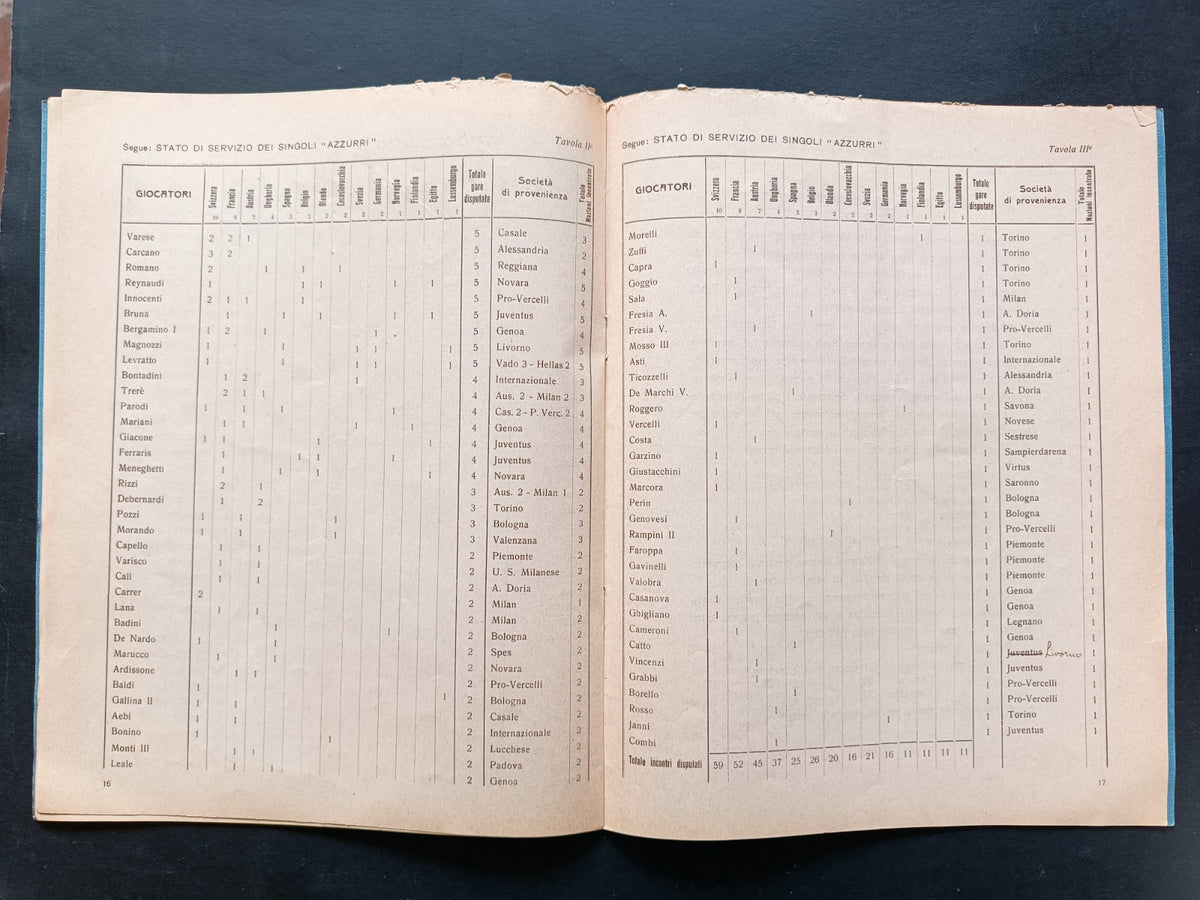 Segue: STATO DI SERVIZIO DEI SINGOLI "AZZURRI" Tavola IIª
GIOCATORI Svizzera Francia Austria Ungheria Spagna Belgio Olanda Cecoslovacchia Svezia Germania Norvegia Finlandia Egitto Lussemburgo Totale gare disputate Società di provenienza Totale Nazioni incontrate
10 8 7 4 3 3 2 2 2 2 1 1 1 1
Varese 2 2 1 5 Casale 3
Carcano 3 2 5 Alessandria 2
Romano 2 1 1 1 5 Reggiana 4
Reynaudi 1 1 1 1 1 5 Novara 5
Innocenti 2 1 1 1 5 Pro-Vercelli 4
Bruna 1 1 1 1 1 5 Juventus 5
Bergamino I 1 2 1 1 5 Genoa 4
Magnozzi 1 1 1 1 1 5 Livorno 5
Levratto 1 1 1 1 1 5 Vado 3 - Hellas 2 5
Bontadini 1 2 1 4 Internazionale 3
Trerè 2 1 1 4 Aus. 2 - Milan 2 3
Parodi 1 1 1 1 4 Cas. 2 - P. Verc. 2 4
Mariani 1 1 1 1 4 Genoa 4
Giacone 1 1 1 1 4 Juventus 4
Ferraris 1 1 1 1 4 Juventus 4
Meneghetti 1 1 1 1 4 Novara 4
Rizzi 2 1 3 Aus. 2 - Milan 1 2
Debernardi 1 2 3 Torino 2
Pozzi 1 1 1 3 Bologna 3
Morando 1 1 1 3 Valenzana 3
Capello 1 1 2 Piemonte 2
Varisco 1 1 2 U. S. Milanese 2
Cali 1 1 2 A. Doria 2
Carrer 2 2 Milan 1
Lana 1 1 2 Milan 2
Badini 1 1 2 Bologna 2
De Nardo 1 1 2 Spes 2
Marucco 1 1 2 Novara 2
Ardissone 1 1 2 Pro-Vercelli 2
Baldi 1 1 2 Bologna 2
Gallina II 1 1 2 Casale 2
Aebi 1 1 2 Internazionale 2
Bonino 1 1 2 Lucchese 2
Monti III 1 1 2 Padova 2
Leale 1 1 2 Genoa 2
16
Segue: STATO DI SERVIZIO DEI SINGOLI "AZZURRI" Tavola IIIª
GIOCATORI Svizzera Francia Austria Ungheria Spagna Belgio Olanda Cecoslovacchia Svezia Germania Norvegia Finlandia Egitto Lussemburgo Totale gare disputate Società di provenienza Totale Nazioni incontrate
10 8 7 4 3 3 2 2 2 2 1 1 1 1
Morelli 1 1 Torino 1
Zuffi 1 1 Torino 1
Capra 1 1 Torino 1
Goggio 1 1 Torino 1
Sala 1 1 Milan 1
Fresia A. 1 1 A. Doria 1
Fresia V. 1 1 Pro-Vercelli 1
Mosso III 1 1 Torino 1
Asti 1 1 Internazionale 1
Ticozzelli 1 1 Alessandria 1
De Marchi V. 1 1 A. Doria 1
Roggero 1 1 Savona 1
Vercelli 1 1 Novese 1
Costa 1 1 Sestrese 1
Garzino 1 1 Sampierdarena 1
Giustacchini 1 1 Virtus 1
Marcora 1 1 Saronno 1
Perin 1 1 Bologna 1
Genovesi 1 1 Bologna 1
Rampini II 1 1 Pro-Vercelli 1
Faroppa 1 1 Piemonte 1
Gavinelli 1 1 Piemonte 1
Valobra 1 1 Piemonte 1
Casanova 1 1 Genoa 1
Ghigliano 1 1 Genoa 1
Cameroni 1 1 Legnano 1
Catto 1 1 Genoa 1
Vincenzi 1 1 Juventus Livorno 1
Grabbi 1 1 Juventus 1
Borello 1 1 Pro-Vercelli 1
Rosso 1 1 Pro-Vercelli 1
Janni 1 1 Torino 1
Combi 1 1 Juventus 1
Totale incontri disputati 59 52 45 37 25 26 20 16 21 16 11 11 11 11
17